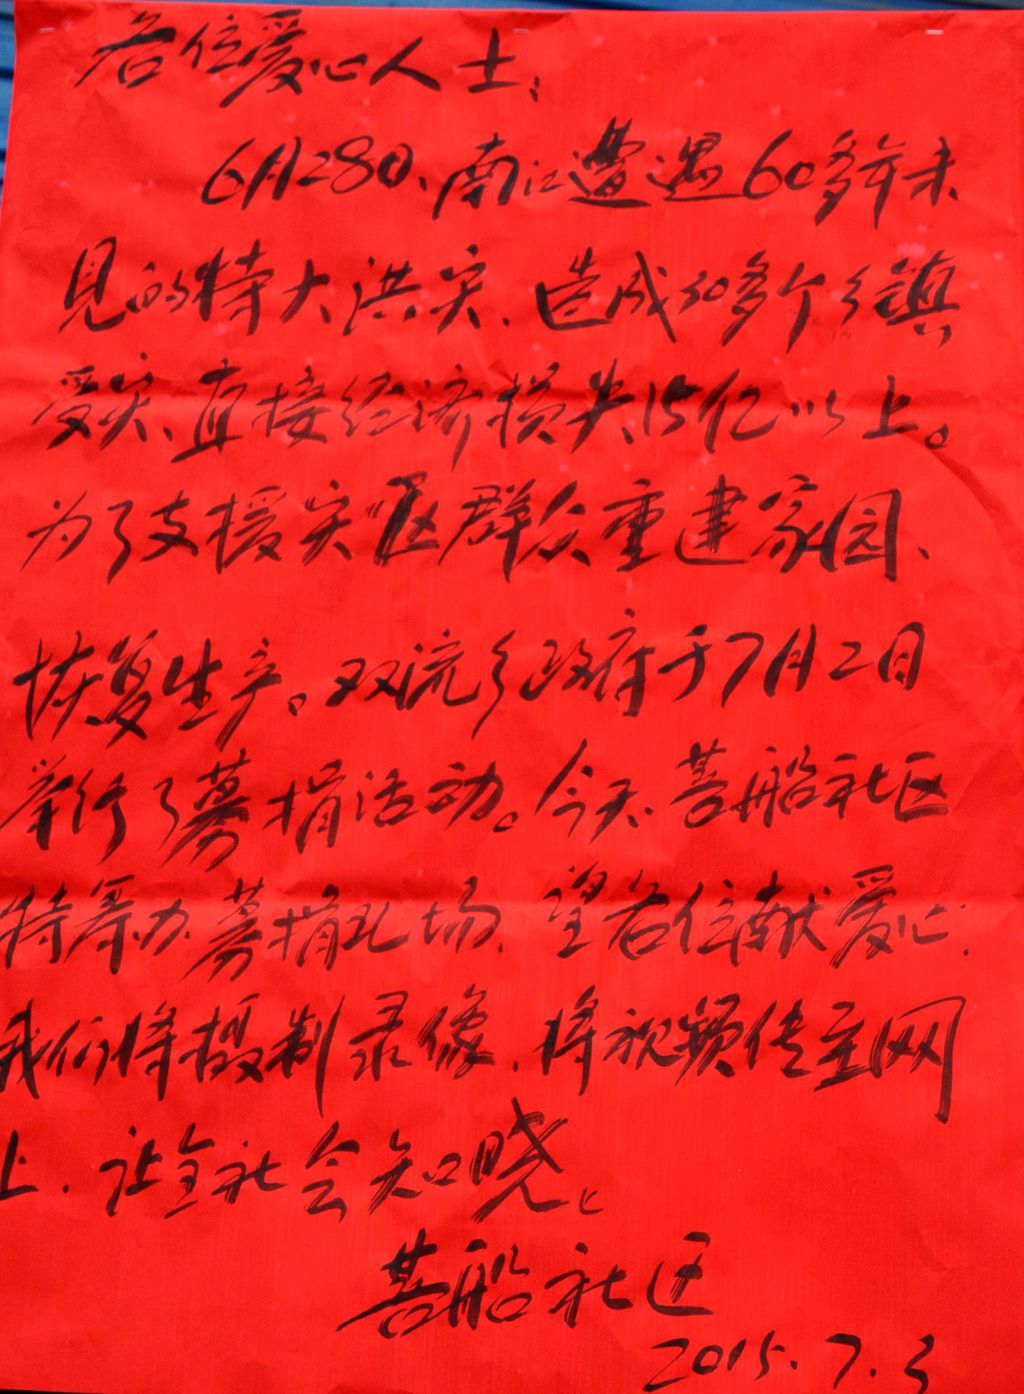 各位爱心人士:
6月28日、南江遭遇60多年未
见的特大洪灾、造成30多个乡镇
受灾、直接经济损失15亿以上。
为了支援灾区群众重建家园、
恢复生产。双流乡政府于7月2日
举行了募捐活动。今天、船社区
特筹办募捐现场、望各位献爱心.
我们将摄制录像、将视频传至网
上.让全社会知晓。
船社区
2015.7.3